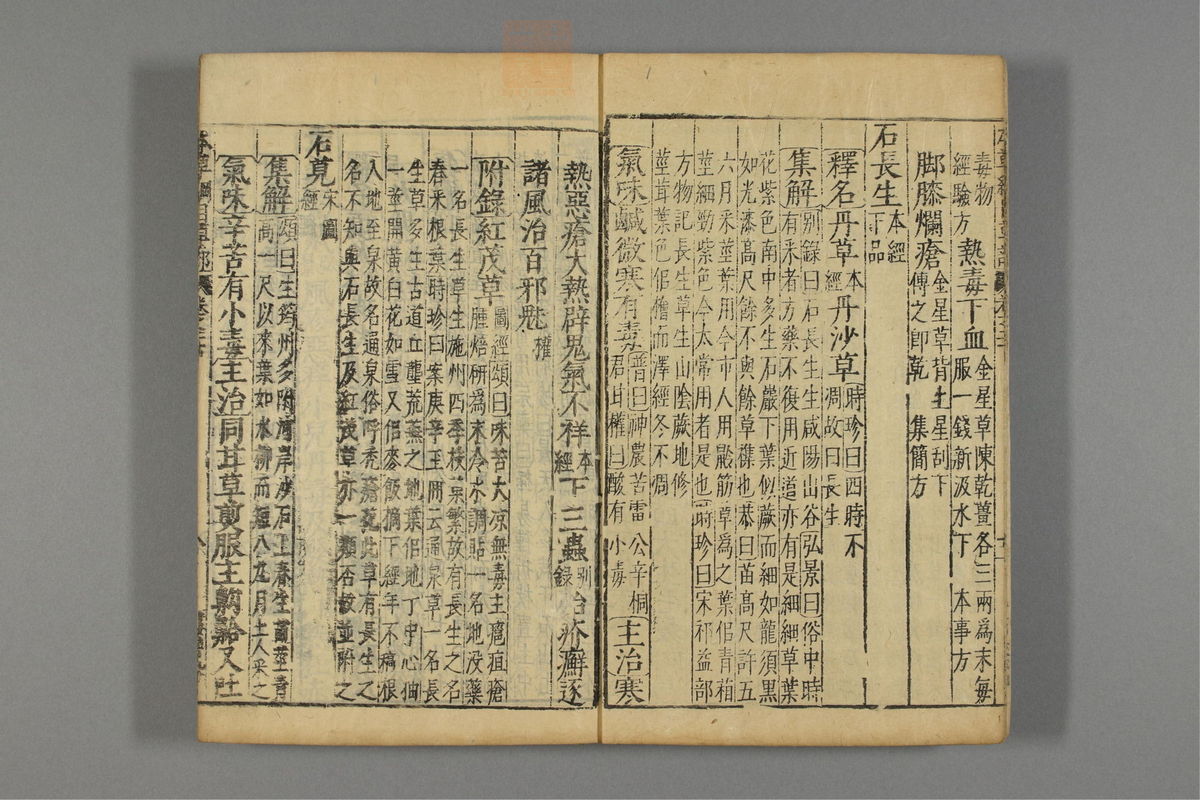 毒物
經驗方 熱毒下血 金星草陳乾薑各三兩為末每
服一錢新汲水下 本事方
脚膝爛瘡 金星草背上星刮下
傅之即乾 集簡方
石長生 本經
下品
釋名丹草 本經 丹沙草 時珍曰四時不
凋故曰長生
集解 別錄曰石長生生咸陽山谷弘景曰俗中時
有采者方藥不復用近道亦有是細細草葉
花紫色南中多生石巖下葉似蕨而細如龍須黑
如光漆高尺餘不與餘草襍也恭曰苗高尺許五
六月采莖葉用今市人用𮥼筋草為之葉佀青葙
莖細勁紫色今太常用者是也時珍曰宋祁益部
方物記長生草生山陰蕨地修
莖茸葉色佀檜而澤經冬不凋
氣味鹹微寒有毒 普曰神農苦雷公辛桐
君甘權曰酸有小毒 主治寒
熱惡瘡大熱辟鬼氣不祥 本經 下三蟲 別錄 治疥癬逐
諸風治百邪魅 權
附錄紅茂草 圖經頌曰味苦大凉無毒主癰疽瘡
腫焙研為末冷水調貼一名地没藥
一名長生草生施州四季枝葉繁故有長生之名
春采根葉時珍曰案庚辛玉冊云通泉草一名長
生草多生古道丘壟荒蕪之地葉佀地丁中心抽
一莖開黄白花如雪又佀麥飯摘下經年不稿根
入地至泉故名通泉俗呼禿瘡花此草有長生之
名不知與石長生及紅茂草亦一類否故並附之
石莧 宋圖
經
集解 頌曰生筠州多附河岸沙石上春生苗莖青
高一尺以來葉如水柳而短八九月土人采之
氣味辛苦有小毒主治同甘草煎服主齁䶎又吐